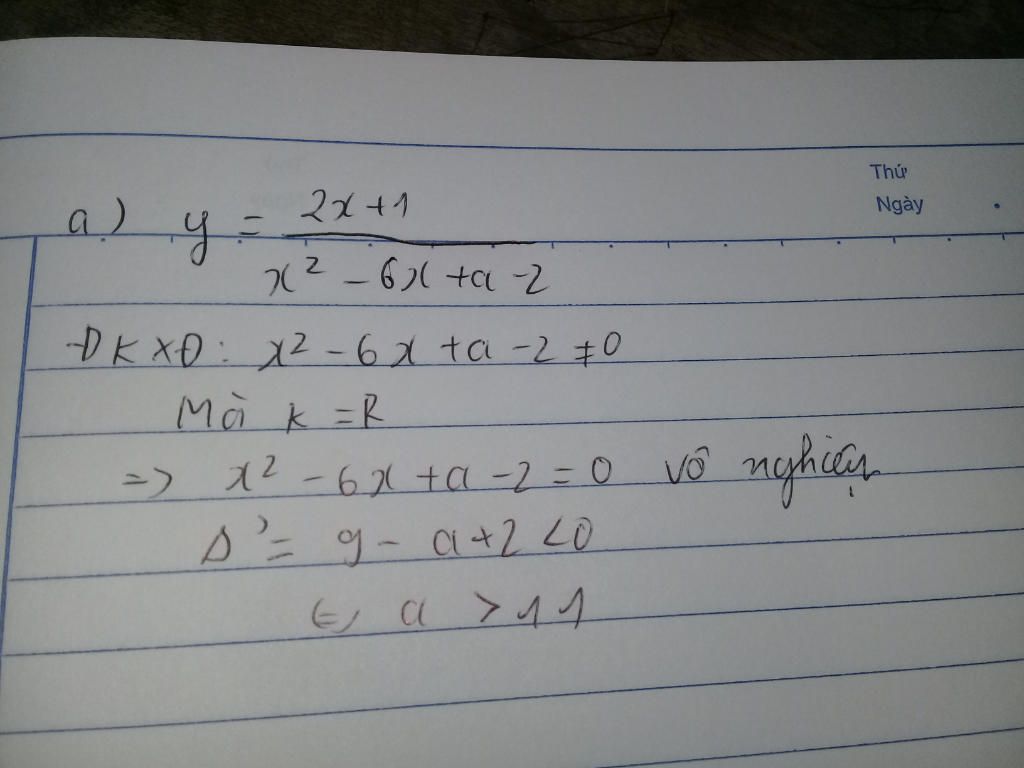 Thứ
Ngày
a) y = (2x+1)/(x² - 6x + a - 2)
ĐKXĐ: x² - 6x + a - 2 ≠ 0
Mà K = R
=> x² - 6x + a - 2 = 0 vô nghiệm
Δ' = 9 - a + 2 < 0
⇔ a > 11